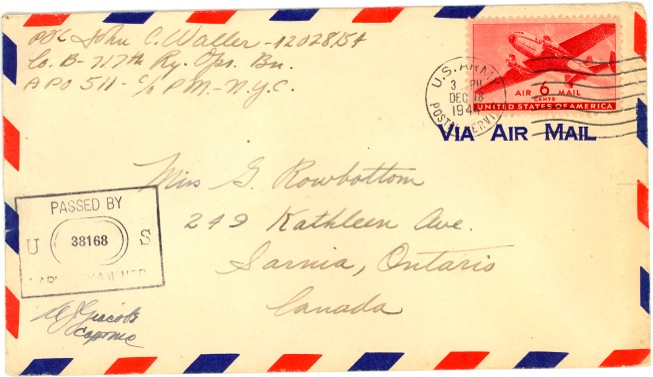 Pfc John C. Waller - 12028154
Co. B - 717th Ry. Opr. Bn.
APO 511 - c/o PM - N.Y.C.
U.S. ARMY
3 PM
DEC 18
194
POSTAL SERVICE
AIR 6 MAIL
CENTS
UNITED STATES OF AMERICA
VIA AIR MAIL
Miss G. Rowbottom
249 Kathleen Ave.
Sarnia, Ontario
Canada
PASSED BY
U 38168 S
ARMY EXAMINER